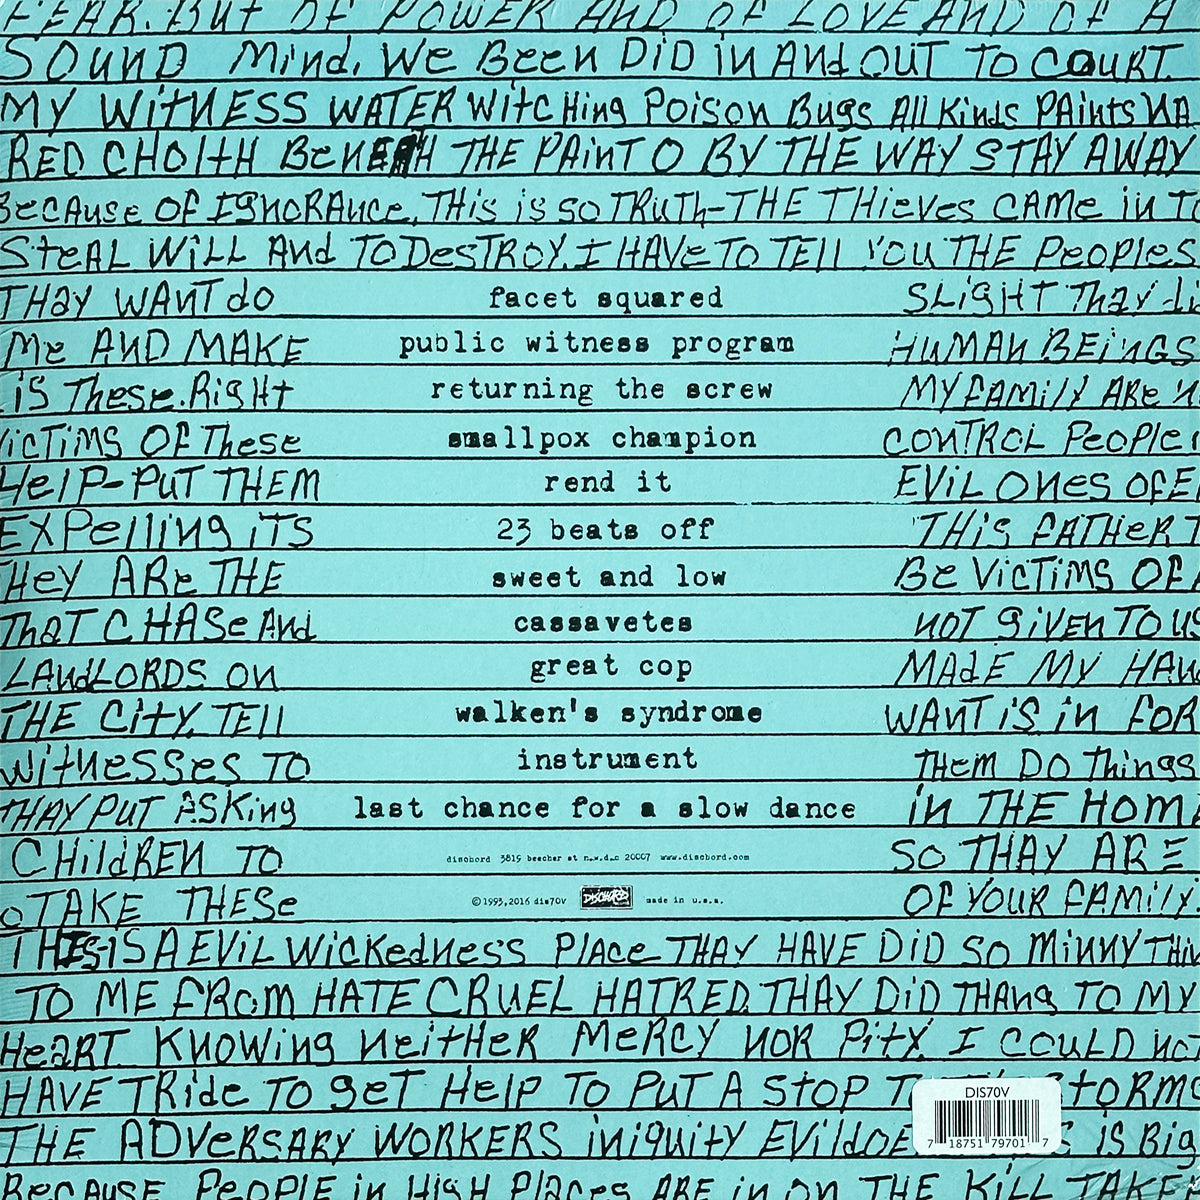 FEAR. BUT OF POWER AND OF LOVE AND OF A
SOUND Mind. WE BEEN DID iN ANd OUT TO COURT.
MY WitNESS WATER WITCHing POISON BUgS All KiNdS PAiNTS
RED CHOItH BENEATH THE PAiNT O BY THE WAY STAY AWAY
BECAUSE OF IgNORANCE. THis is SO TRUTh-THE THIEVES CAME iN
STEAL WiLL ANd TO DESTROY. I HAVE TO TELL YOU THE PEOPlES
THAY WANT dO facet squared SLigHT THAY
ME AND MAKE public witness program HUMAN BEiNGS
iS THESE. RigHt returning the screw MY FAMilY ARE
ViCTiMS OF THESE smallpox champion CONTROL PEOPlE
HElP-PUT THEM rend it EViL ONES OF
EXPElliNg iTS 23 beats off THiS FATHER
THEY ARE THE sweet and low BE ViCTiMS OF
THAT CHASE ANd cassavetes NOT giVEN TO US
LANdLORDS ON great cop MAdE MY
THE CiTY. TELl walken's syndrome WANT iS iN FOR
WiTNESSES TO instrument THEM DO THiNgS
THAY PUT ASKiNg last chance for a slow dance iN THE HOM
CHildREN TO dischord 3819 beecher st n.w.d.c 20007 www.dischord.com SO THAY ARE
TAKE THESE ©1993,2016 dis70V DISCHORD made in u.s.a. OF YOUR FAMilY.
THIS-IS A EViL WiCKEdNESS PlACE THAY HAVE DiD SO MiNNY
TO ME FROM HATE CRUEL HATRED. THAY DiD THANg TO MY
HEART KNOWiNg NEiTHER MERCY NOR PiTY. I COULD NOT
HAVE TRidE TO gET HElP TO PUT A STOP STORMS
THE ADVERSARY WORKERS iNiqUitY EVil iS Big
BECAUSE PEOPlE iN HigH PlACES ARE iN ON THE KILL TAKE
DIS70V
7 18751 79701 7